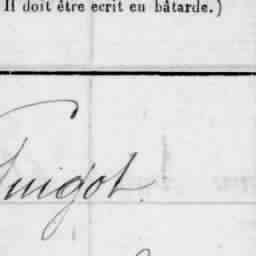 Il doit être ecrit en bâtarde.)
Guigot